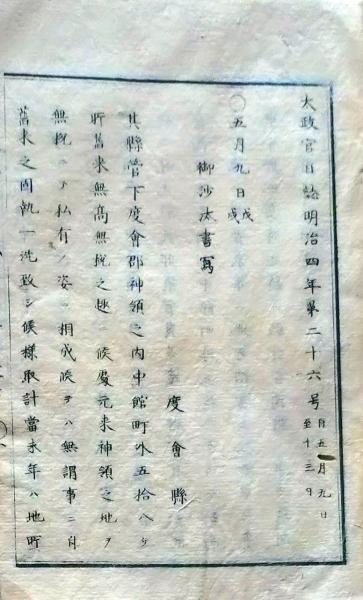 太政官日誌明治四年第二十六号 自五月九日至十三日
〇五月九日戊戌
御沙汰書写
度會縣
其縣管下度會郡神領之内中館町外五拾八ケ
町舊来無高無税之趣ニ候處元来神領之地ヲ
無税ニテ私有ノ姿ニ相成候ヲハ無謂事ニ自
舊来之固執一洗致シ候様取計當未年ハ地町